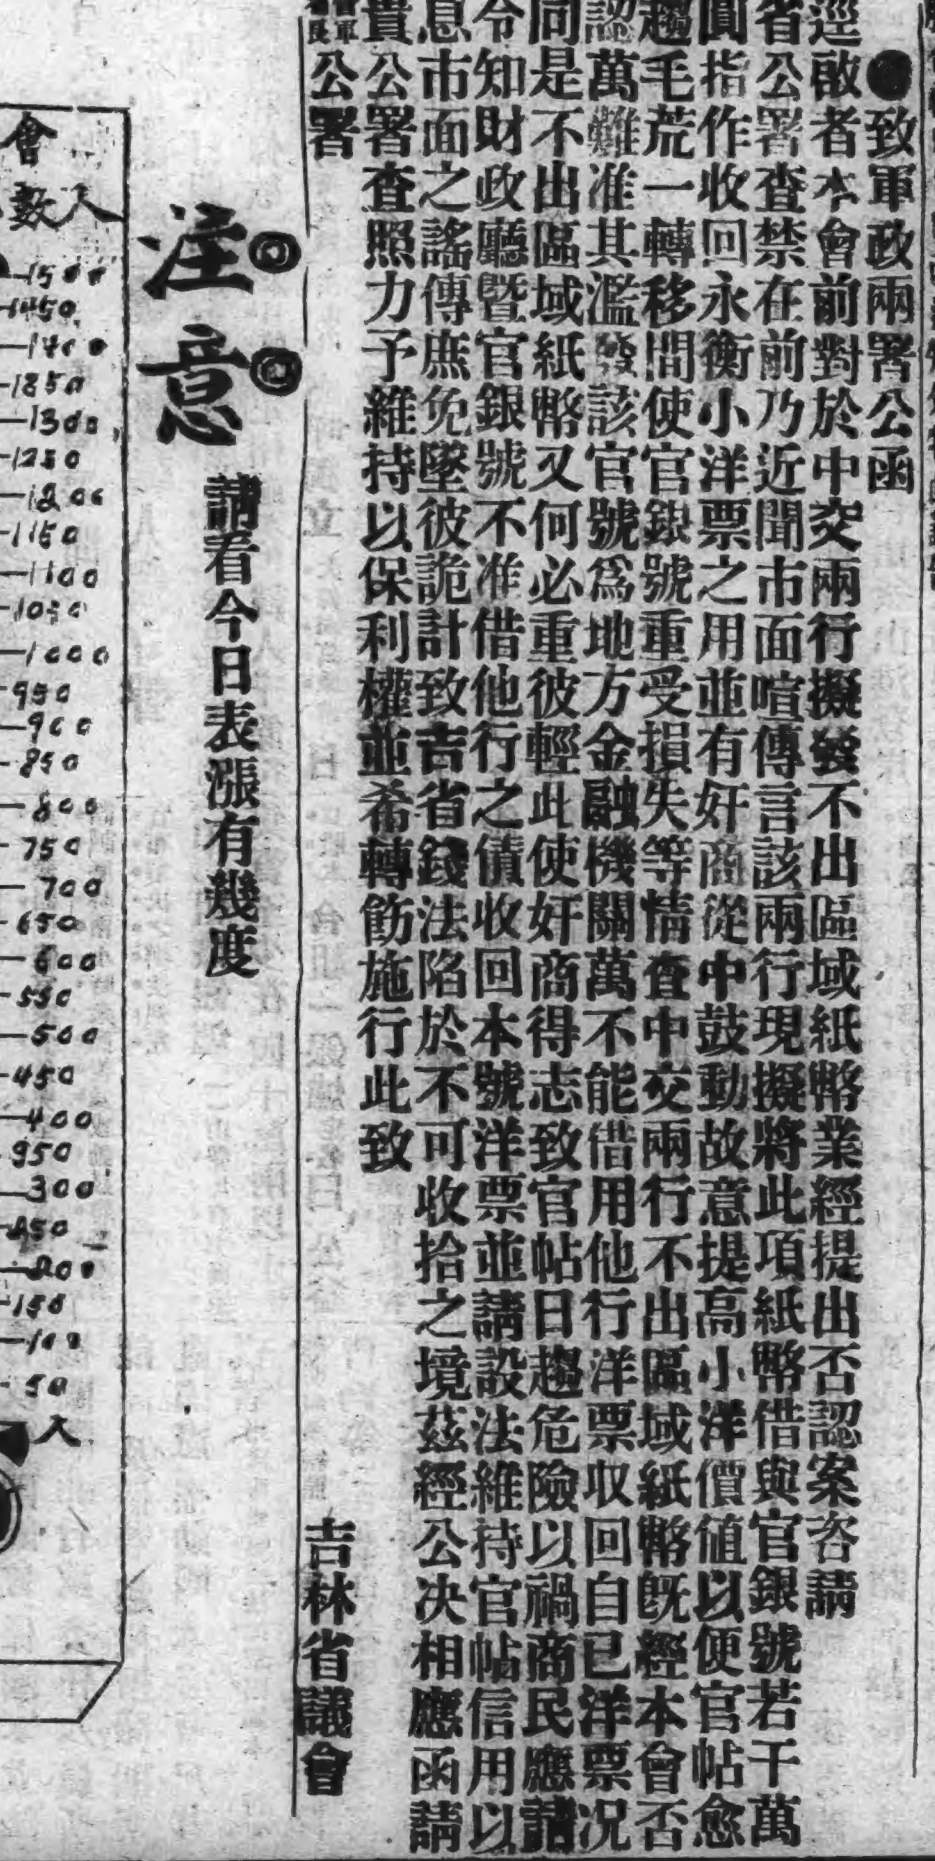 ●致軍政兩署公函
逕啟者本會前對於中交兩行擬發不出區域紙幣業經提出否認案咨請
省公署查禁在前乃近聞市面喧傳言該兩行現擬將此項紙幣借與官銀號若干萬
圓指作收回永衡小洋票之用並有奸商從中鼓動故意提高小洋價值以便官帖愈
趨毛荒一轉移間使官銀號重受損失等情查中交兩行不出區域紙幣既經本會否
認萬難准其濫發該官號爲地方金融機關萬不能借用他行洋票收回自已洋票况
同是不出區域紙幣又何必重彼輕此使奸商得志致官帖日趨危險以禍商民應請
令知財政廳暨官銀號不准借他行之債收回本號洋票並請設法維持官帖信用以
息市面之謠傳庶免墜彼詭計致吉省錢法陷於不可收拾之境茲經公决相應函請
貴公署查照力予維持以保利權並希轉飭施行此致
公署 吉林省議會
注意
請看今日表漲有幾度
會
數人
1500
1450
1400
1850
1300
1250
1200
1150
1100
1050
1000
950
900
850
800
750
700
650
600
550
500
450
400
950
300
250
200
150
100
50
人